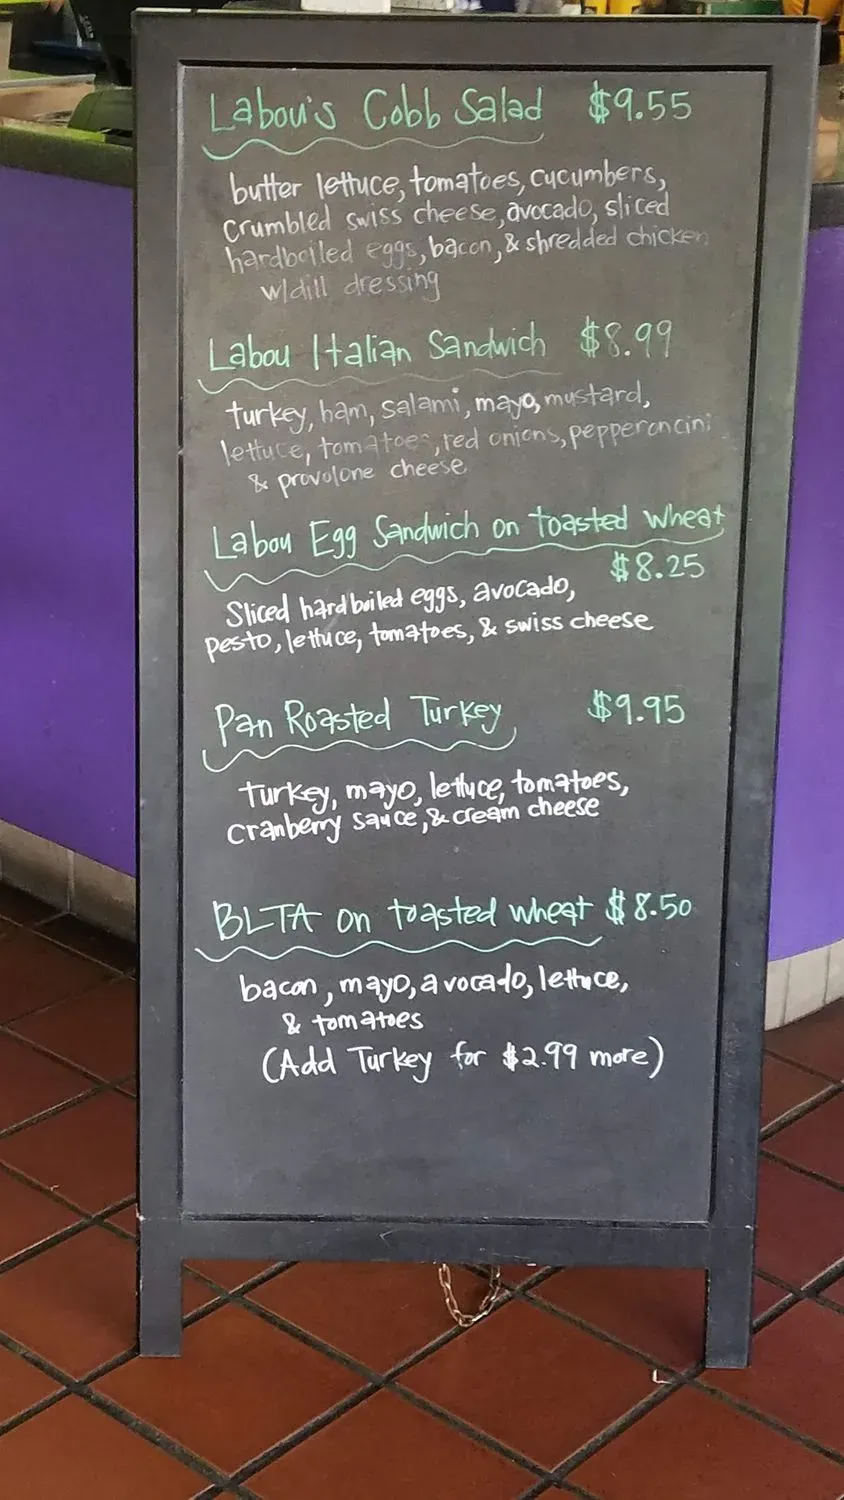 Labou's Cobb Salad $9.55
butter lettuce, tomatoes, cucumbers,
crumbled swiss cheese, avocado, sliced
hardboiled eggs, bacon, & shredded chicken
w/dill dressing
Labou Italian Sandwich $8.99
turkey, ham, salami, mayo, mustard,
lettuce, tomatoes, red onions, pepperoncini
& provolone cheese
Labou Egg Sandwich on toasted wheat
$8.25
Sliced hardboiled eggs, avocado,
pesto, lettuce, tomatoes, & swiss cheese
Pan Roasted Turkey $9.95
Turkey, mayo, lettuce, tomatoes,
cranberry sauce, & cream cheese
BLTA on toasted wheat $8.50
bacon, mayo, avocado, lettuce,
& tomatoes
(Add Turkey for $2.99 more)